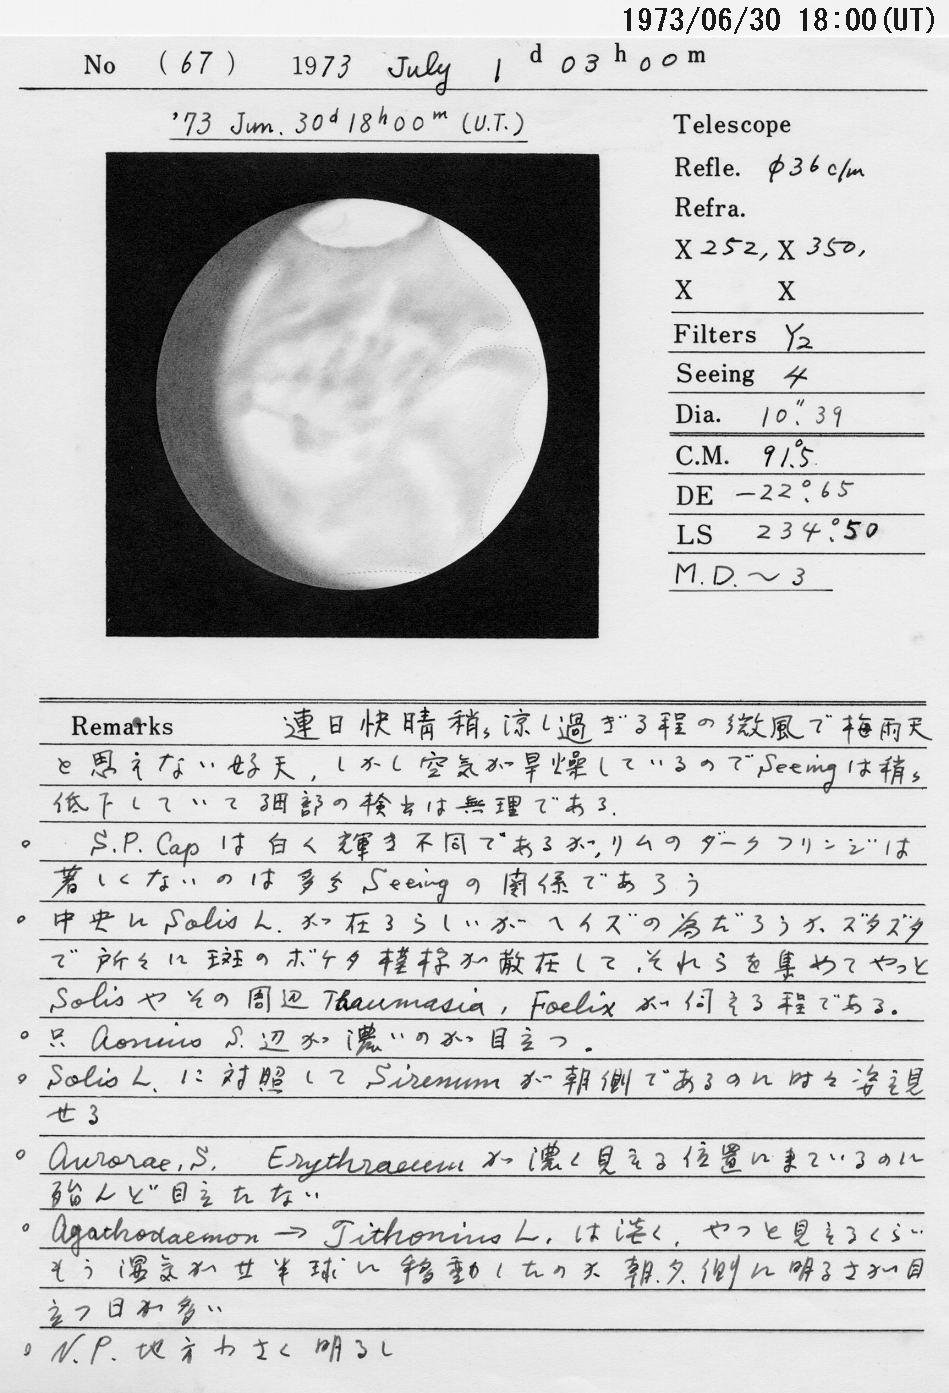 1973/06/30 18:00(UT)
No (67) 1973 July 1 d 03 h 00 m
'73 Jun. 30d 18h00m (U.T.)
Telescope
Refle. φ36c/m
Refra.
X 252, X 350,
X X
Filters Y2
Seeing 4
Dia. 10".39
C.M. 91°.5
DE −22°.65
LS 234°.50
M.D.〜3
Remarks 連日快晴稍々涼し過ぎる程の微風で梅雨天
と思えない好天,しかし空気が旱燥しているのでSeeingは稍々
低下していて細部の検出は無理である.
○ S.P. Capは白く輝き不同であるが,リムのダークフリンジは
著しくないのは多分Seeingの関係であろう
○ 中央にSolis L.が在るらしいがヘイズの為だろうかズタズタ
で所々に斑のボケタ模様が散在して,それらを集めてやっと
Solisやその周辺Thaumasia, Foelixが伺える程である。
○ 只Aonius S.辺が濃いのが目立つ.
○ Solis L.に対照してSirenumが朝側であるのに時々姿を見
せる
○ Aurorae.S. Erythraeumが濃く見える位置に来ているのに
殆んど目立たない
○ Agathodaemon → Tithonius L.は淡く,やっと見えるくらい
もう湿気が北半球に移動したのか朝.夕.側に明るさが目
立つ日が多い
○ N.P.地方わさく明るし